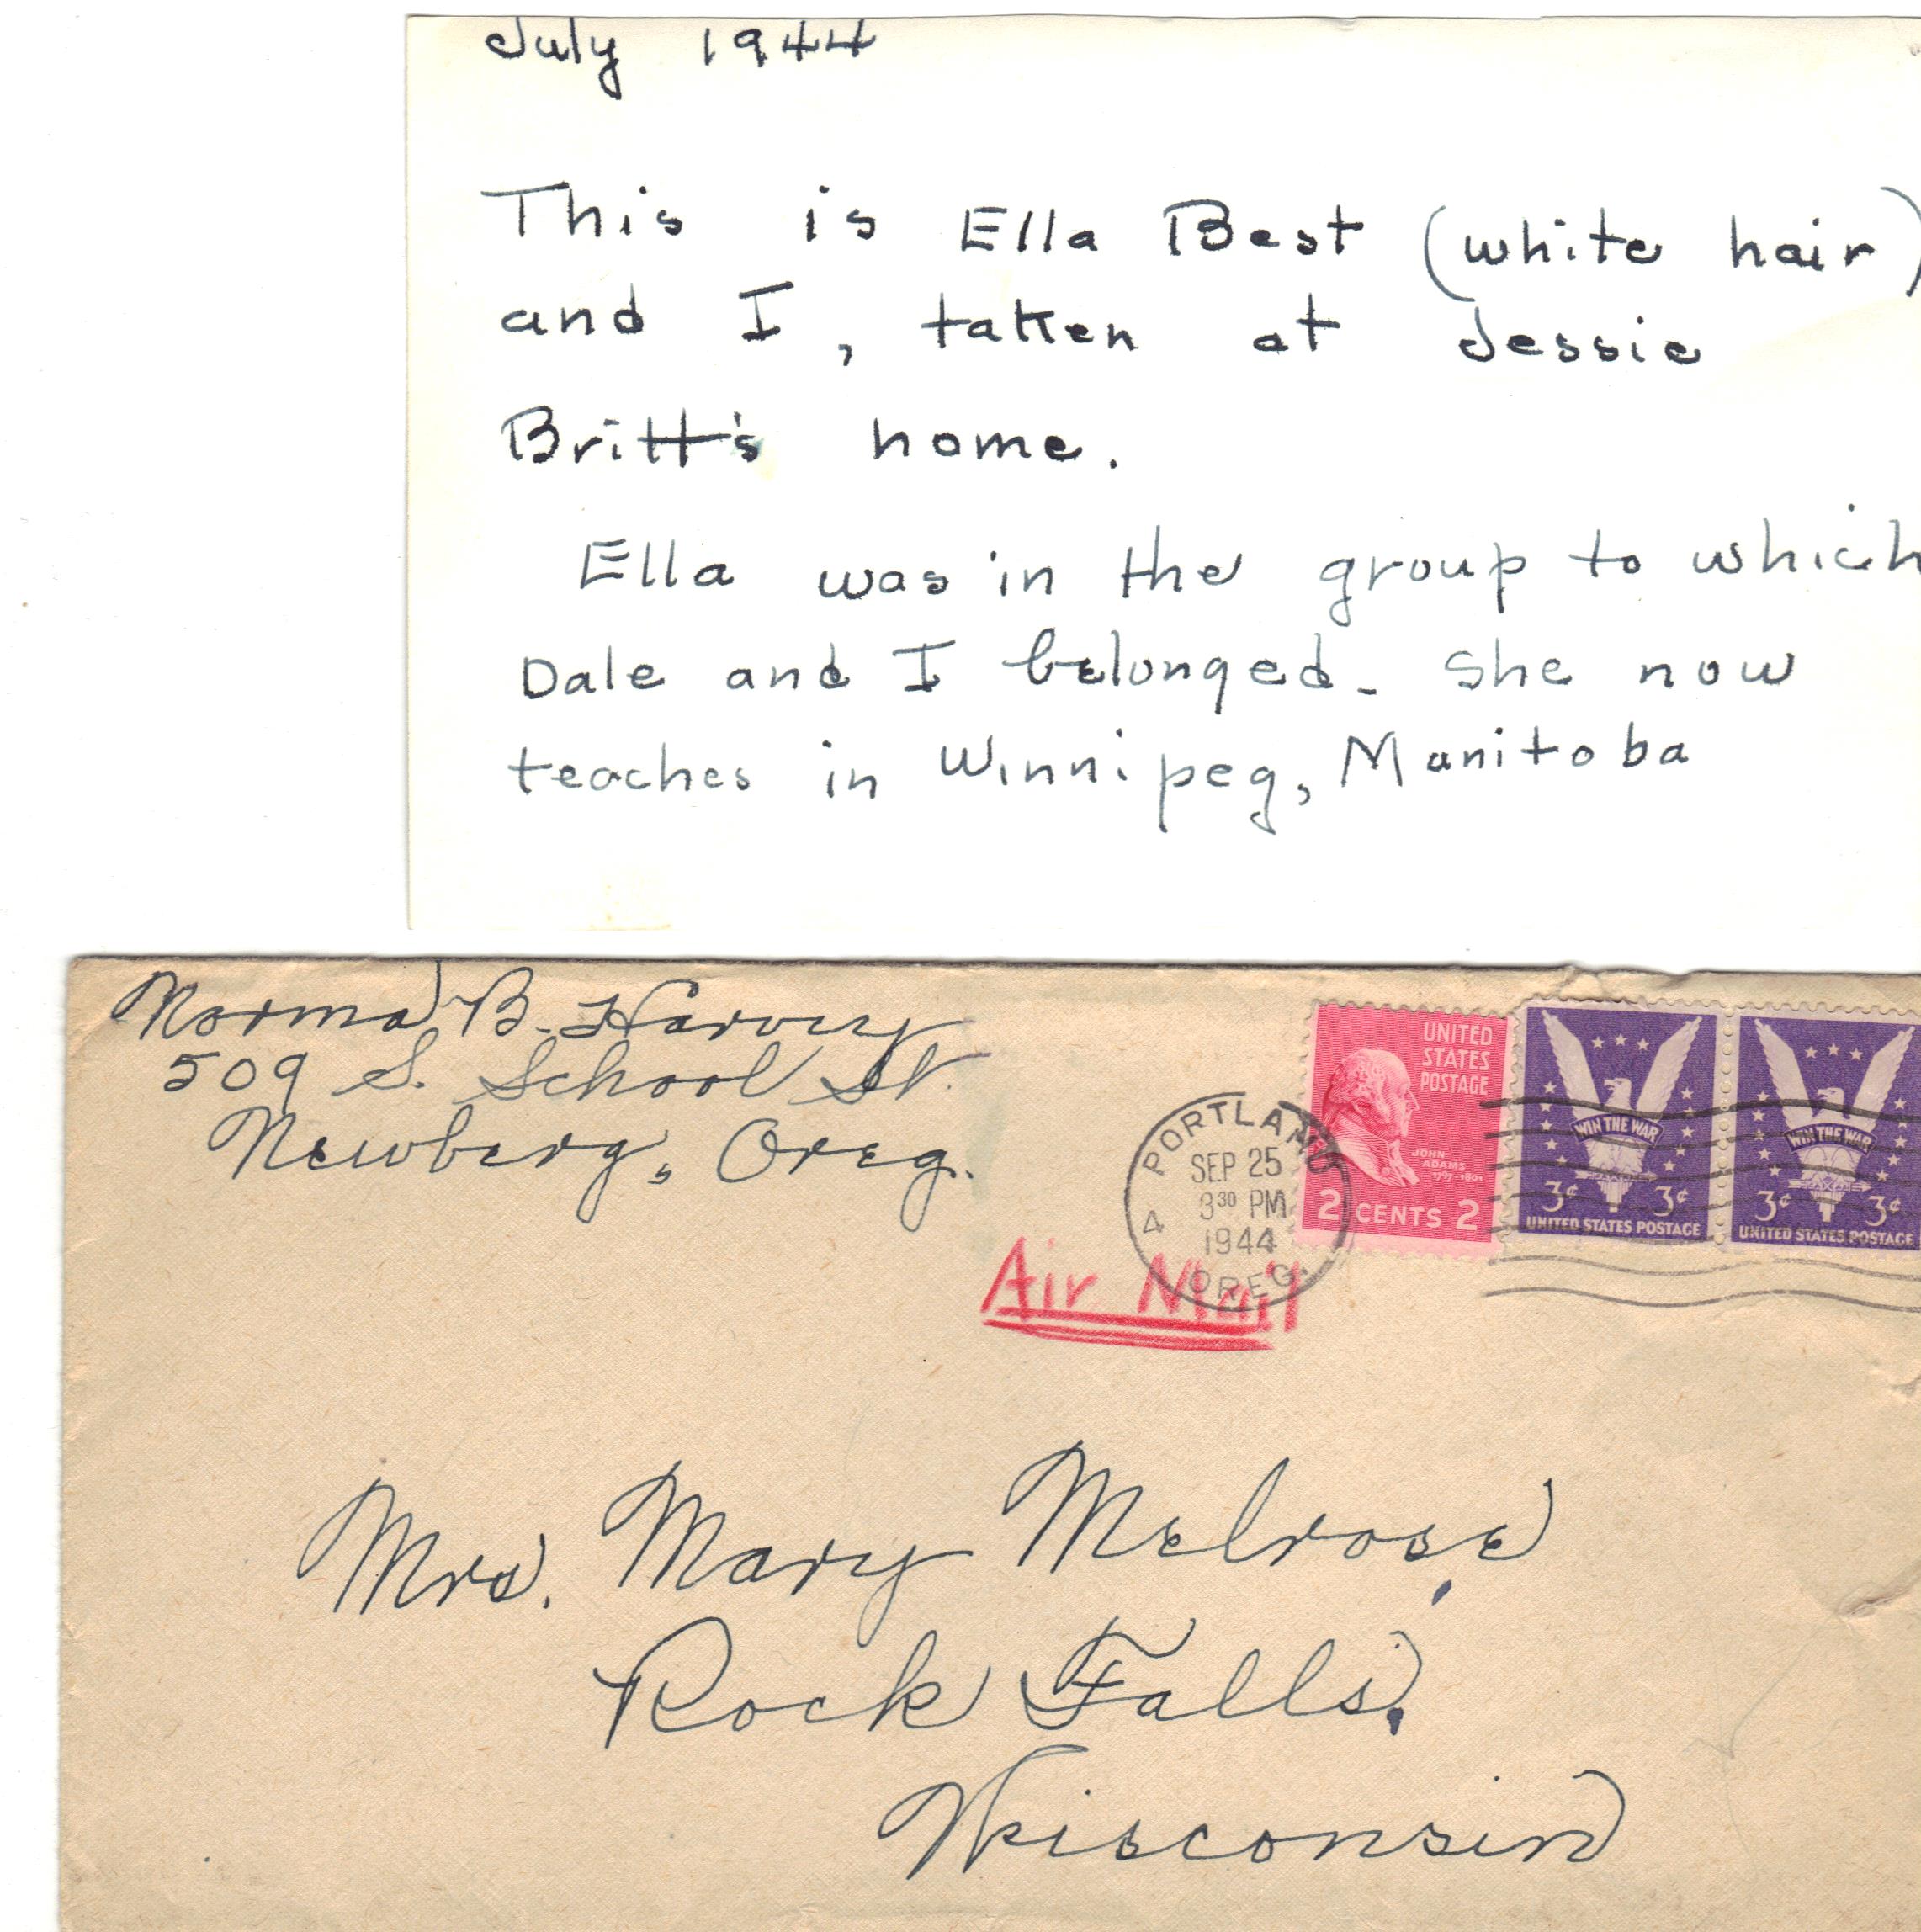 July 1944
This is Ella Best (white hair)
and I, taken at Jessie
Britt's home.
Ella was in the group to which
Dale and I belonged. She now
teaches in Winnipeg, Manitoba
Norma B. Harvey
509 S. School St.
Newberg, Oreg.
PORTLAND
SEP 25
3 30 PM
1944
4
OREG.
UNITED
STATES
POSTAGE
JOHN
ADAMS
1797-1801
2 CENTS 2
WIN THE WAR
3¢ 3¢
UNITED STATES POSTAGE
WIN THE WAR
3¢ 3¢
UNITED STATES POSTAGE
Air Mail
Mrs. Mary Melrose,
Rock Falls,
Wisconsin